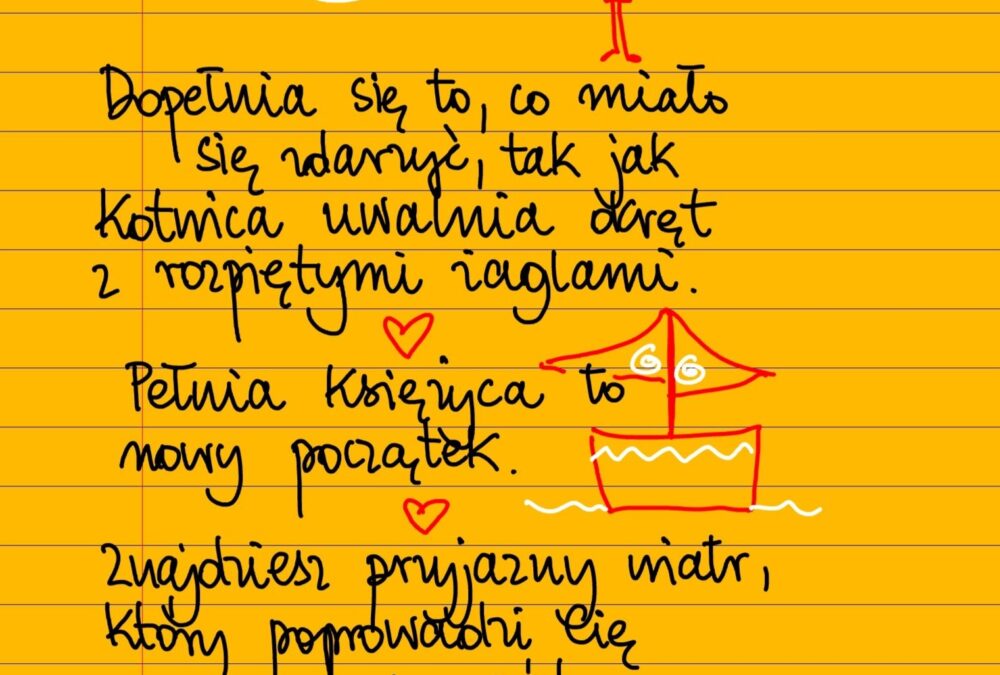 Dopełnia się to, co miało
się zdarzyć, tak jak
Kotwica uwalnia okręt
z rozpiętymi żaglami.
Pełnia Księżyca to
nowy początek.
Znajdziesz przyjazny wiatr,
który poprowadzi Cię